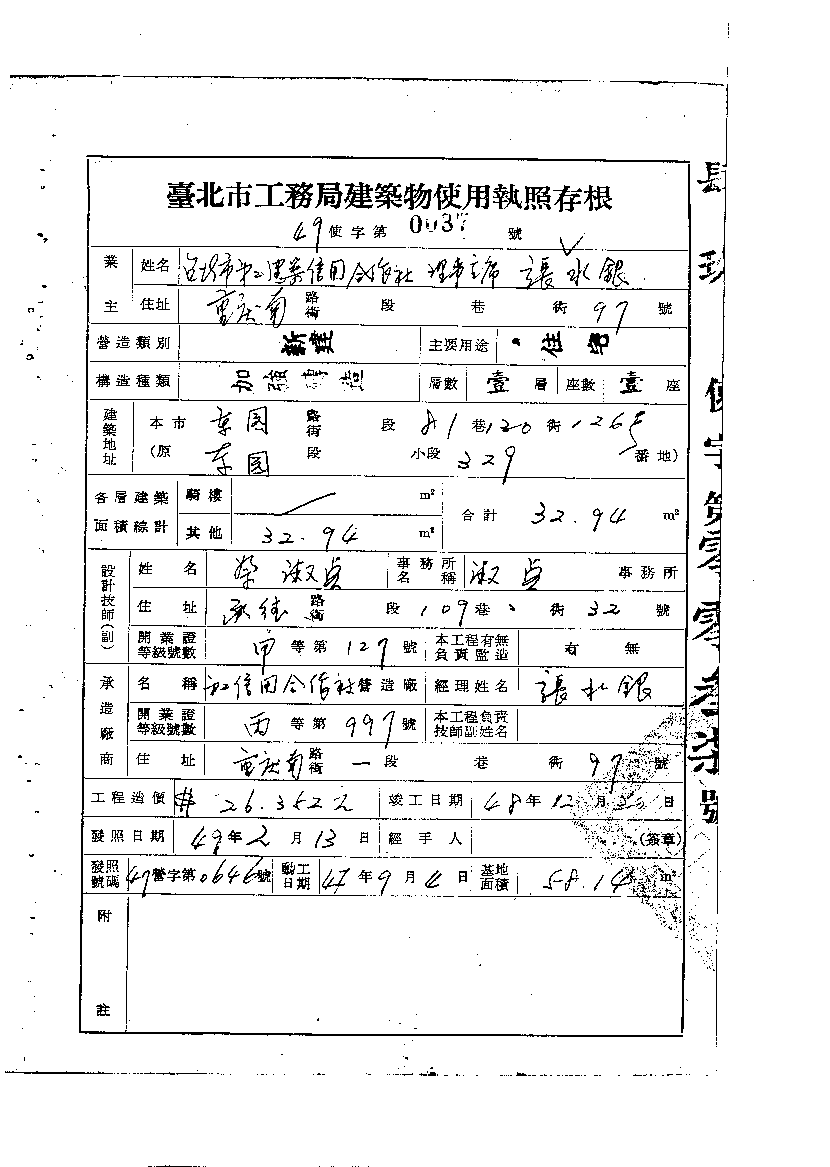 臺北市工務局建築物使用執照存根
49使字第0037號
業主 姓名 市第二建築信用合作社 理事主席 張水銀
住址 重慶南 路街 段 巷 街 97 號
營造類別 新建 主要用途 住宅
構造種類 加強磚造 層數 壹 層 座數 壹 座
建築地址 本市 東園 路街 段 81 巷 120 衖 126 號
(原 東園 段 小段 329 番地)
各層建築面積總計 騎樓 m² 合計 32.94 m²
其他 32.94 m²
設計技師(副) 姓名 蔡淑貞 事務所名稱 淑貞 事務所
住址 承德 路街 段 109 巷 衖 32 號
開業證等級號數 甲 等第 127 號 本工程有無負責監造 有 無
承造廠商 名稱 信用合作社營造廠 經理姓名 張水銀
開業證等級號數 丙 等第 997 號 本工程負責技師副姓名
住址 重慶南 路街 一 段 巷 衖 97 號
工程造價 26.352 竣工日期 48年12月 日
發照日期 49年2月13日 經手人 (簽章)
發照號碼 47營字第0646號 動工日期 47年9月4日 基地面積 58.14 m²
附註
肆玖使字第零零叁柒號